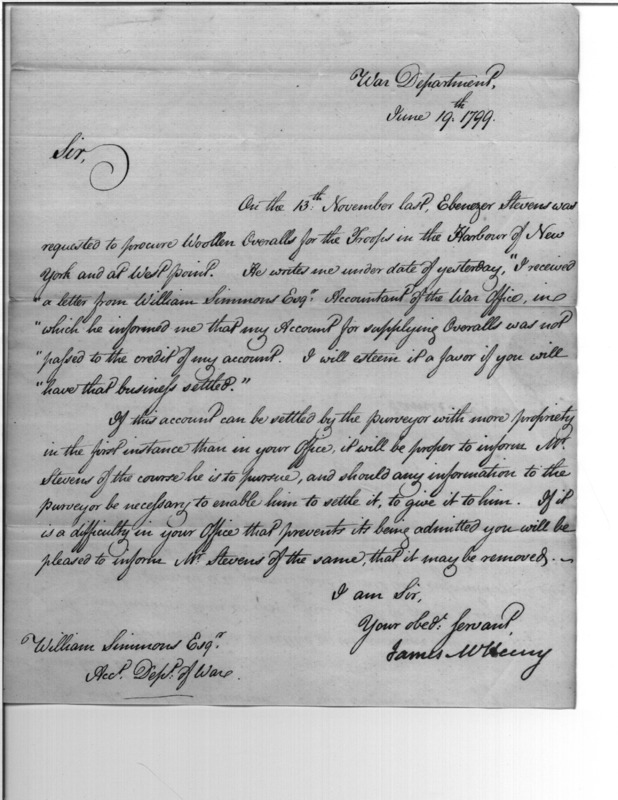 War Department,
June 19th. 1799.
Sir,
On the 13th. November last, Ebenezer Stevens was
requested to procure Woollen Overalls for the Troops in the Harbour of New
York and at West point. He writes me under date of yesterday, "I received
"a letter from William Simmons Esqr. Accountant of the War Office, in
"which he informed me that my Account for supplying Overalls was not
"passed to the credit of my account. I will esteem it a favor if you will
"have that business settled."
If this account can be settled by the purveyor with more propriety
in the first instance than in your Office, it will be proper to inform Mr.
Stevens of the course he is to pursue, and should any information to the
purveyor be necessary to enable him to settle it, to give it to him. If it
is a difficulty in your Office that prevents its being admitted you will be
pleased to inform Mr. Stevens of the same, that it may be removed.
I am Sir,
Your obedt. servant,
James McHenry
William Simmons Esqr.
Acct. Dept. of War.